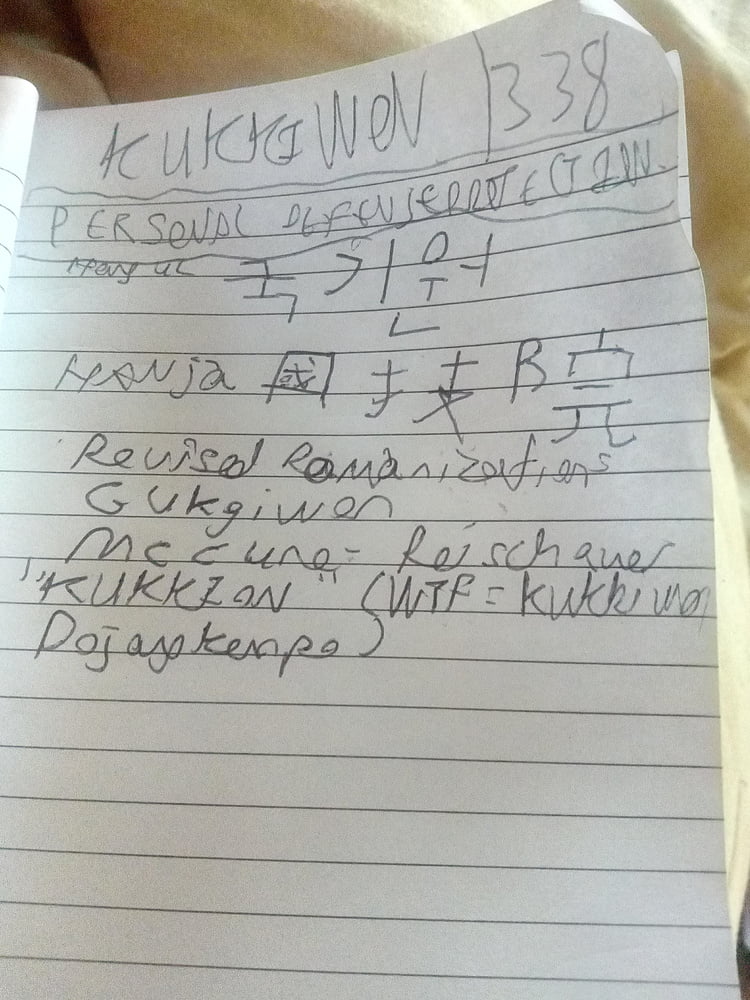 KUKKIWON | 338
PERSONAL DEFENSEPROTECTION.
Hangul 국기원
HANja 國技院
Revised Romanizations
Gukgiwon
McCune-Reischauer
"KUKKION" (WTF = Kukkiwon
Dojangkempo)